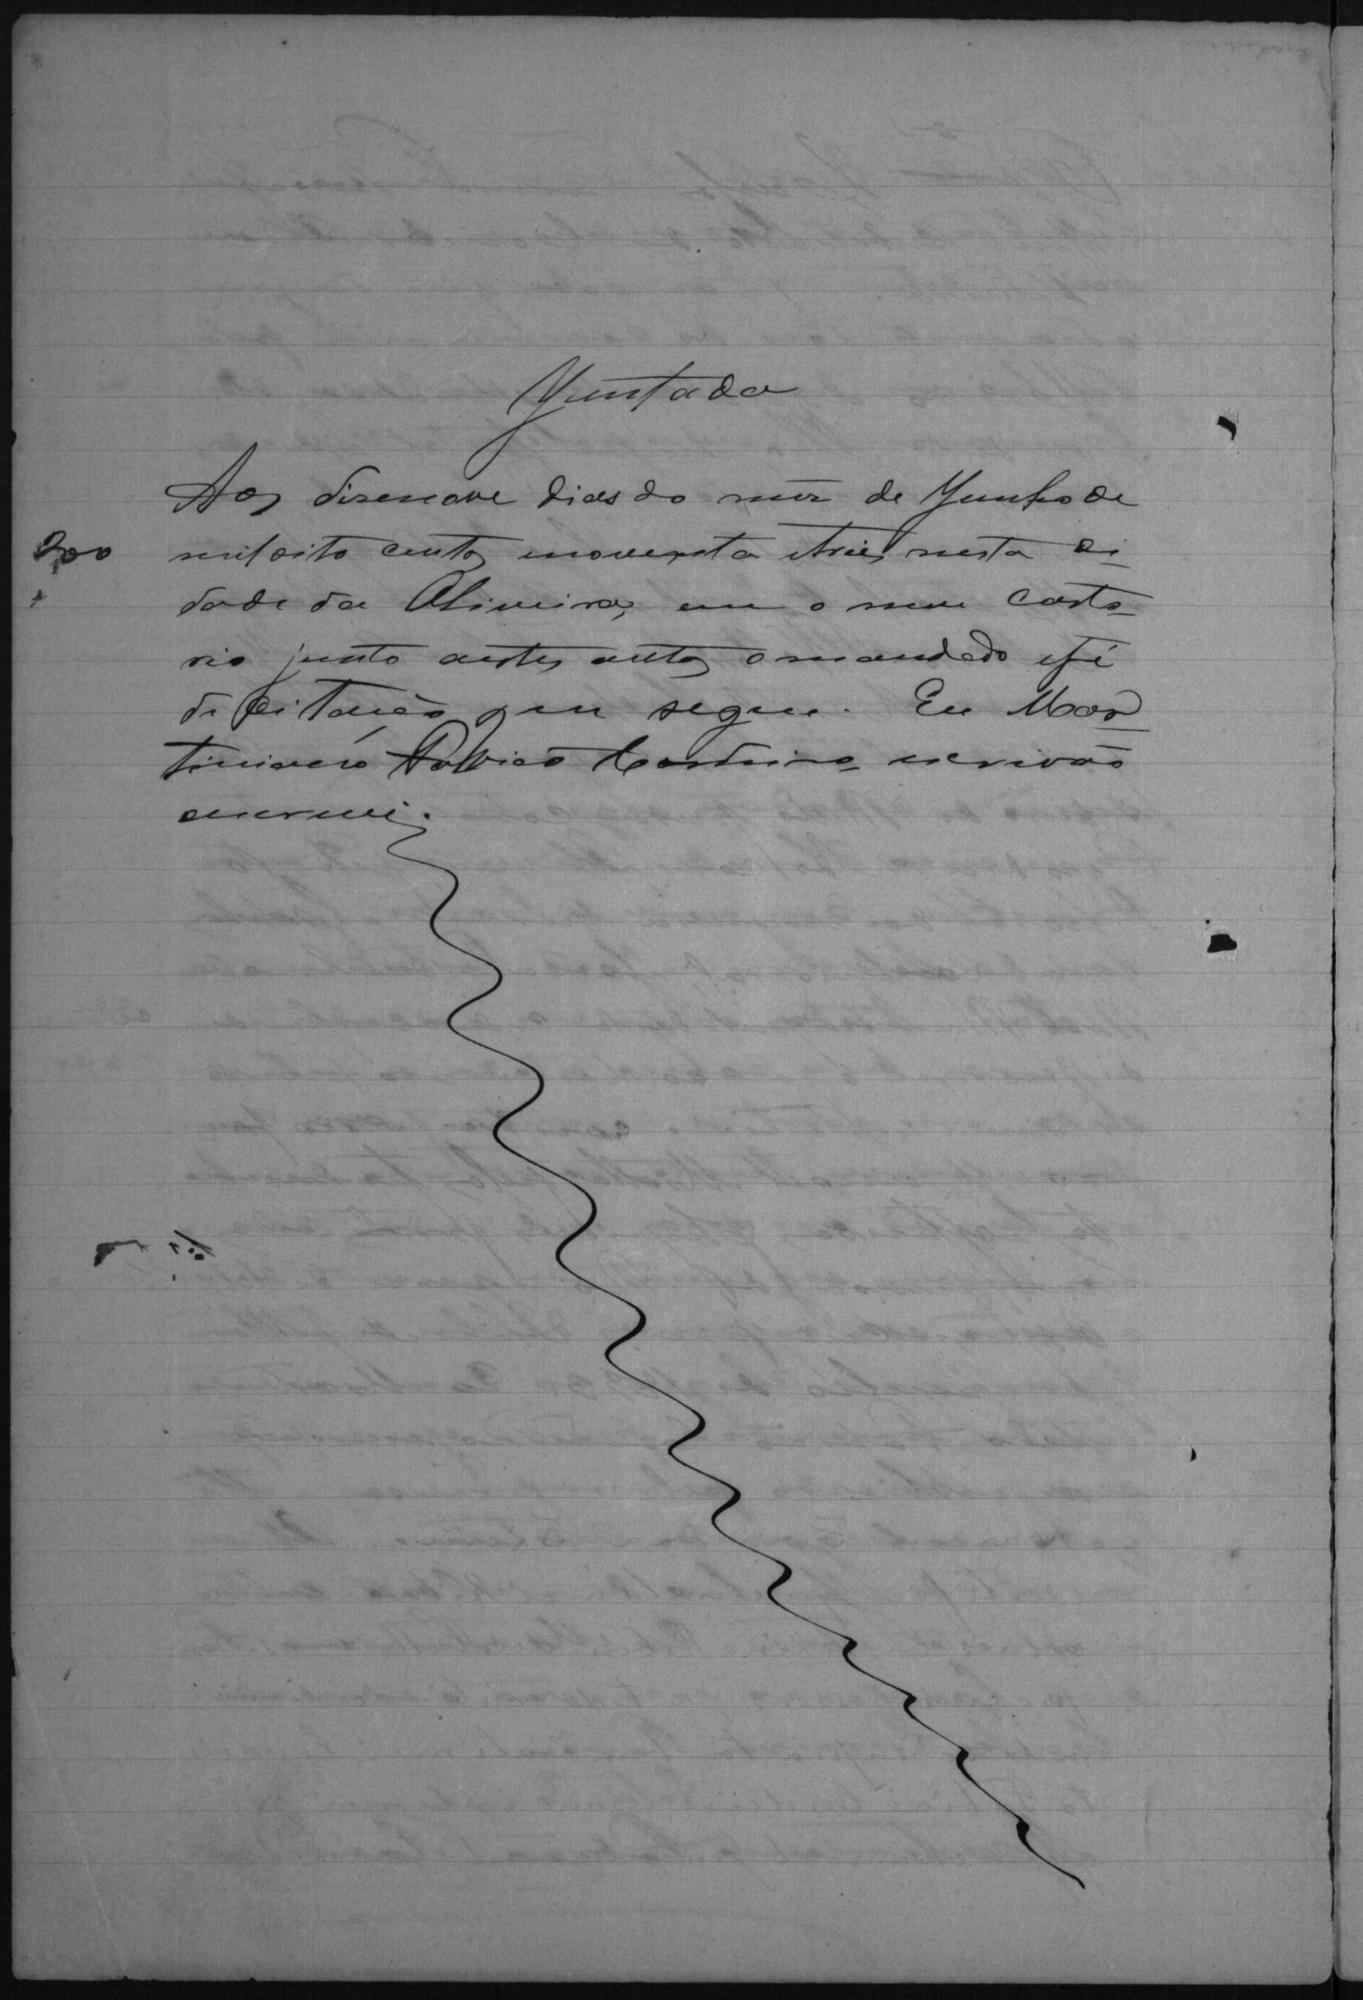 Juntada
Aos disenove dias do mez de Junho de
200
mil oito centos noventa e tres nesta ci-
dade da Oliveira, em o meu carto-
rio junto a estes autos o mandado e fé
de citação que segue. Eu Mar-
escrivão
escrevi.